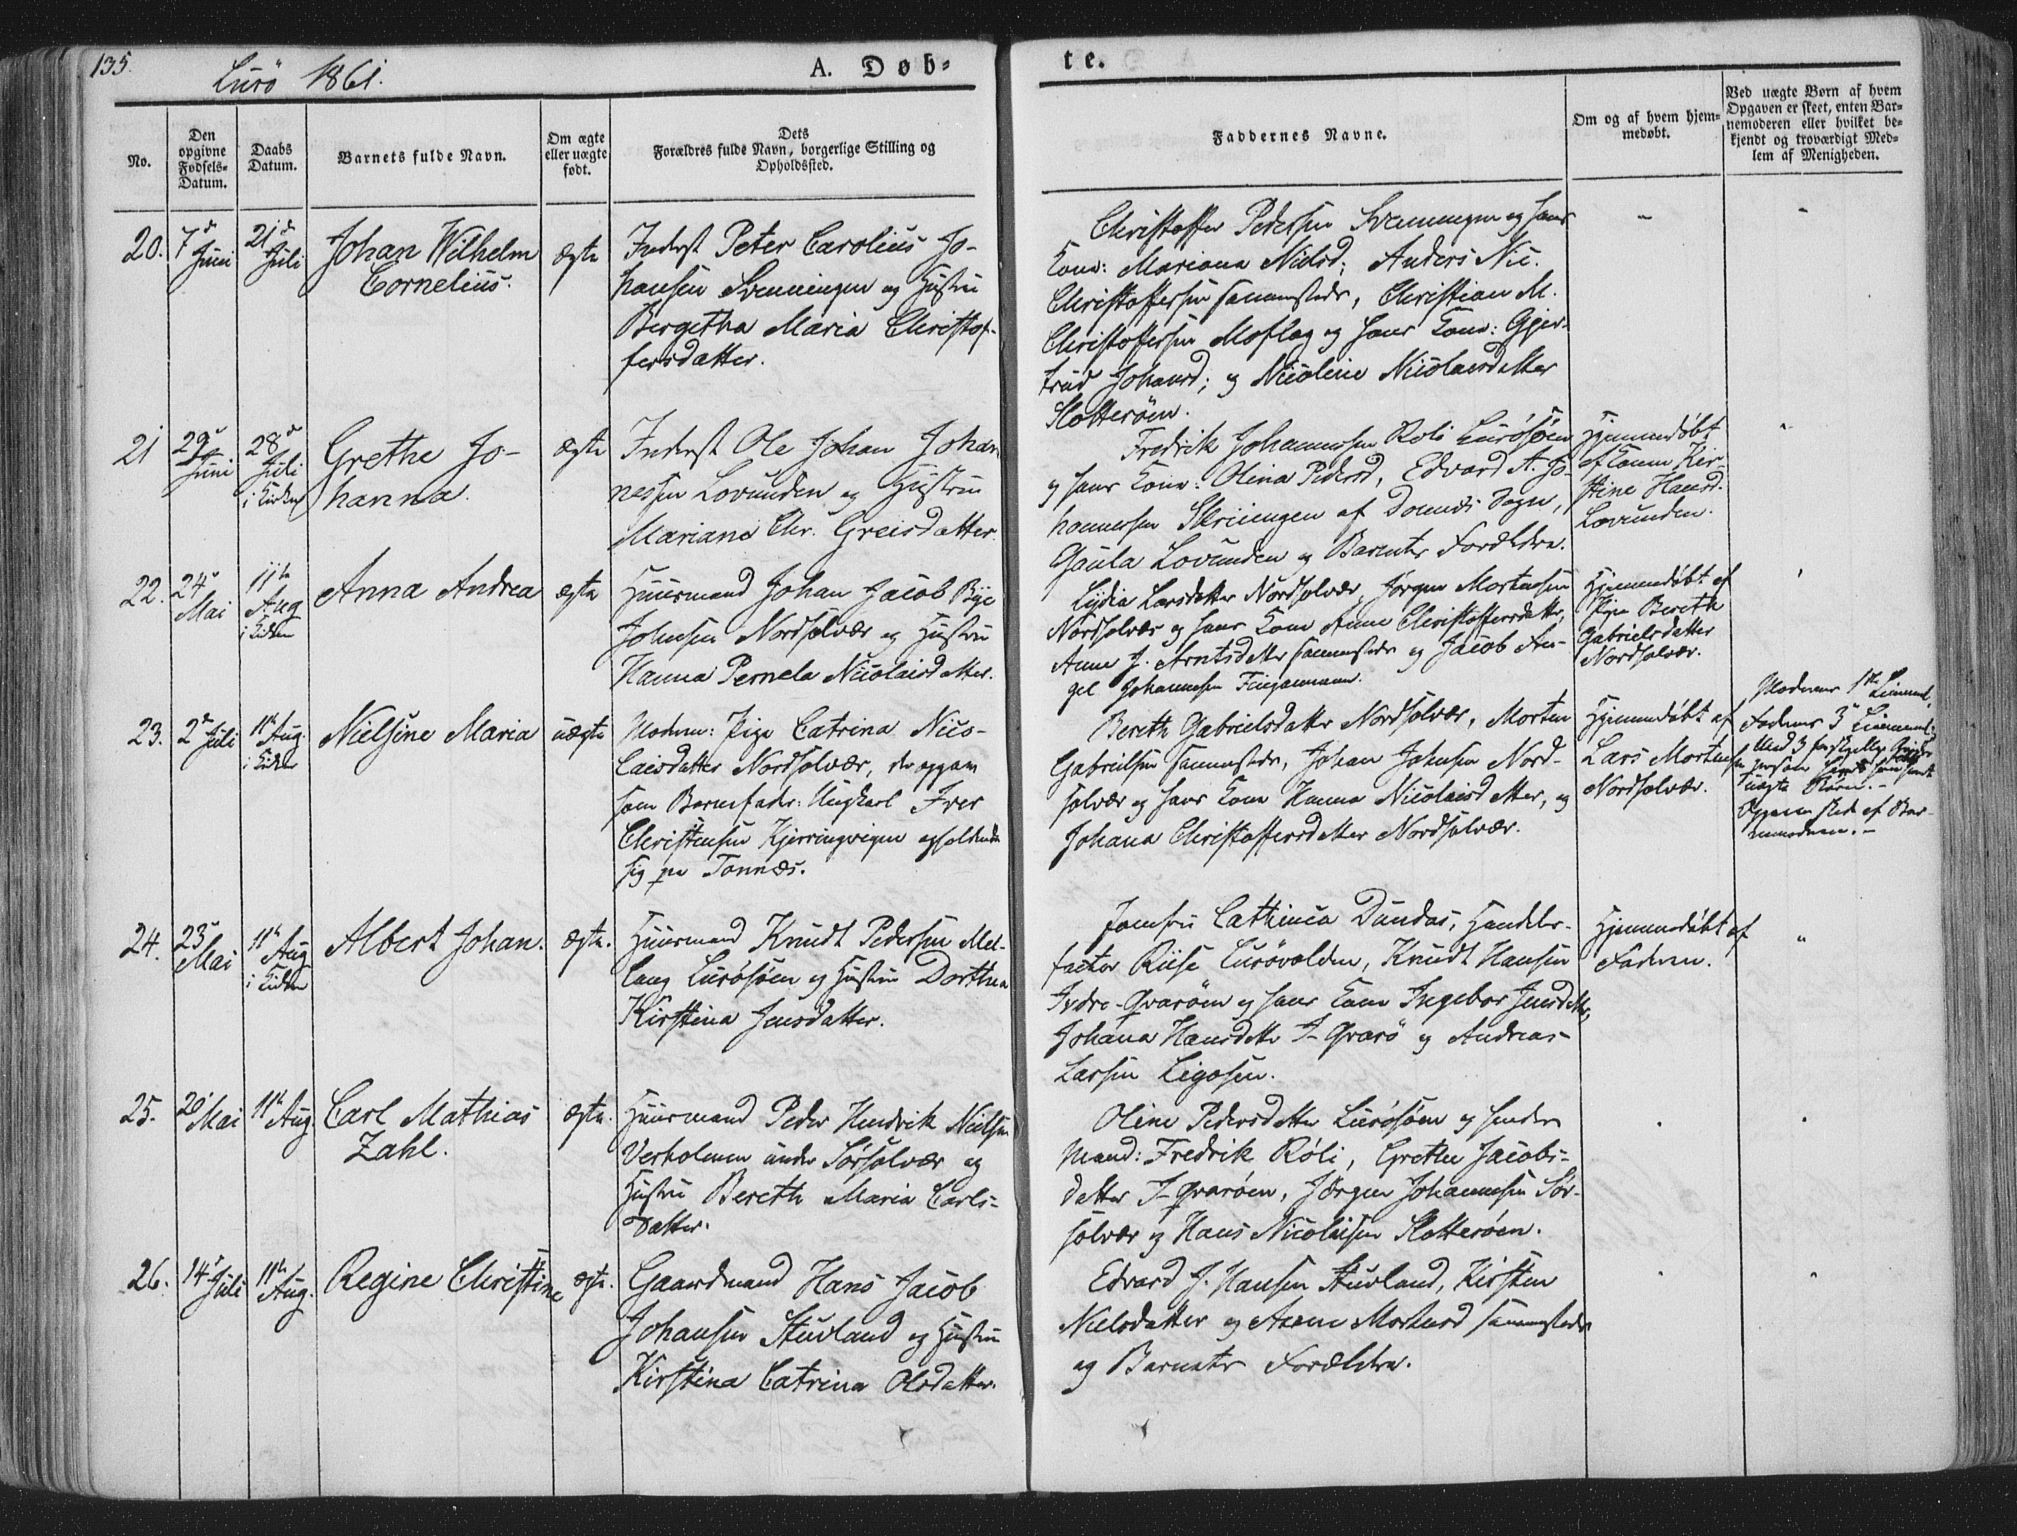 135.
Lurö 1861.
A. Døb-
te.
No.
Den opgivne Fødsels-Datum.
Daabs Datum.
Barnets fulde Navn.
Om ægte eller uægte født.
Dets Forældres fulde Navn, borgerlige Stilling og Opholdssted.
Faddernes Navne.
Om og af hvem hjem-medøbt.
Ved uægte Børn af hvem Opgaven er skeet, enten Bar-nemoderen eller hvilket be-kjendt og troværdigt Med-lem af Menigheden.
20. 7d Juni 21d Juli
Johan Wilhelm
Cornelius.
ægte
Inderst Peter Carolius Jo-
hansen Svenningen og Hustru
Bergetha Maria Christof-
fersdatter.
Christoffer Pedersen Svenningen og hans
Kone: Mariana Nielsd; Anders Nic.
Christoffersen sammesteds, Christian M.
Christoffersen Moflag og hans Kone: Gjer-
trud Johansd; og Nicoline Nicolaisdatter
Slotterøen.
21 29d Juni 28d Juli i Kirken
Grethe Jo-
hanna.
ægte
Inderst Ole Johan Johan
nessen Lovunden og Hustru
Mariane Chr. Greisdatter.
Fredrik Johannesen Roli Lurösöen
og hans Kone: Olina Pedersd, Edvard A. Jo-
hannesen Skriengen af Dønnæs Sogn,
Gaula Lovunden og Barnets Forældre.
Hjemmedøbt
af Konen Kir-
stine Hansd.
Lovunden.
22. 24d Mai 11te Aug i Kirken
Anna Andrea
ægte
Huusmand Johan Jacob Bye
Johnsen Nordsolvær og Hustru
Hanna Pernela Nicolaisdatter.
Lydia Larsdatter Nordsolvær, Jørgen Mortensen
Nordsolvær og hans Kone Anne Christoffersdatter,
Anne J. Arntsdatter sammesteds og Jacob An-
gel Johannesen Finjamann.
Hjemmedøbt af
Pige Bereth
Gabrielsdatter
Nordsolvær.
23. 2d Juli 11te Aug. i Kirken
Nielsine Maria
uægte
Moderen: Pige Catrina Nico-
laisdatter Nordsolvær, der opgav
som Barnefader: Ungkarl Iver
Christensen Kjerringvigen opholdende
sig pa Tonnæs.
Bereth Gabrielsdatter Nordsolvær, Morten
Gabrielsen sammesteds, Johan Johnsen Nord-
solvær og hans Kone Hanna Nicolaisdatter, og
Johana Christoffersdatter Nordsolvær.
Hjemmedøbt af
Lars Mortensen
Nordsolvær.
Moderens 1ste Leiermaal,
Faderens 3d Leiermaal;
Med 3 forskjellige
uægte Børn. -
Opgaven skede af Bar-
nemoderen. -
24. 23d Mai 11te Aug i Kirken
Albert Johan.
ægte.
Huusmand Knudt Pedersen Mel-
lang Lurösöen og Hustru Dorthea
Kirstina Jensdatter.
Jomfru Cathinca Dundas, Handels-
factor Riise Lurövolden, Knudt Hansen
Indre-Qvaröen og hans Kone Ingebor Jensdatter,
Johana Hansdatter I-Qvarö og Andreas
Larsen Ligosen.
Hjemmedøbt af
Faderen.
25. 20d Mai 11te Aug.
Carl Mathias
Zahl.
ægte.
Huusmand Peder Hendrik Nielsen
Verholmen under Sörsolvær og
Hustru Bereth Maria Carls-
datter.
Oline Pedersdatter Lurösöen og hendes
Mand: Fredrik Röli, Grethe Jacobs-
datter I-Qvaröen, Jørgen Johannesen Sör-
solvær og Hans Nicolaisen Slotteröen.
26. 14d Juli 11te Aug.
Regine Christine
ægte.
Gaardmand Hans Jacob
Johansen Stuvland og Hustru
Kirstina Catrina Olsdatter.
Edvard J. Hansen Stuvland, Kirsten
Nielsdatter og Anne Mortensd sammesteds
og Barnets Forældre.